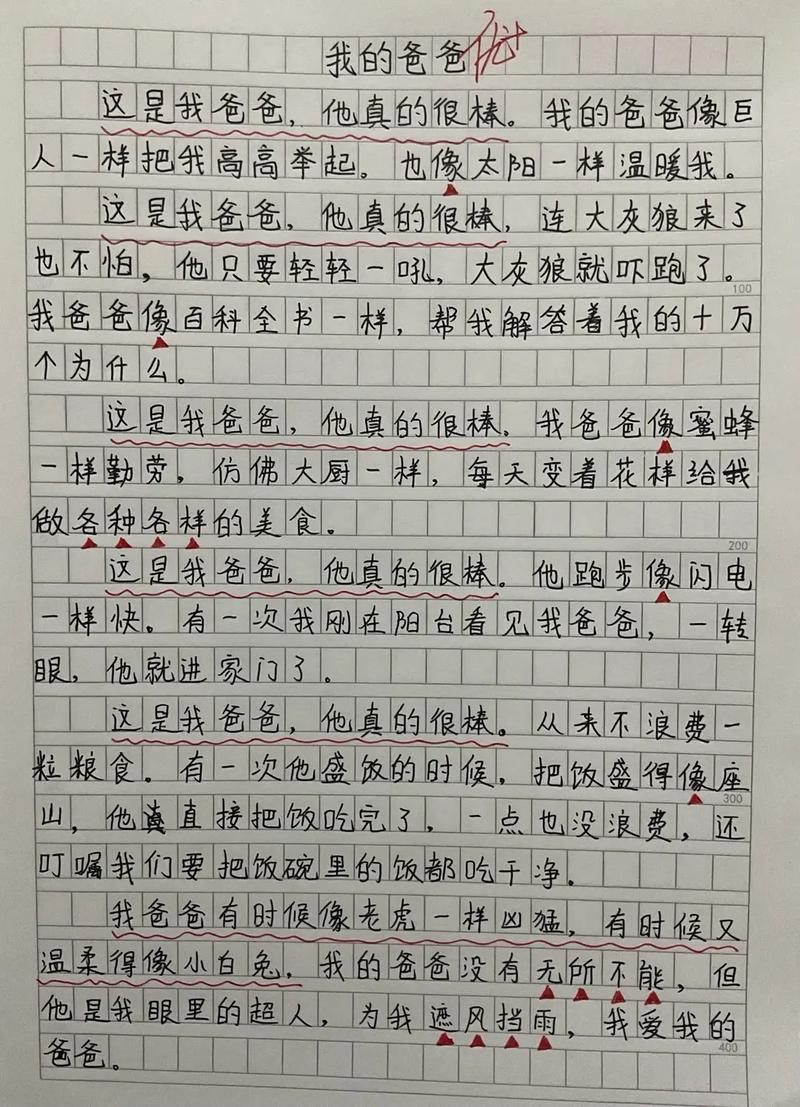 我的爸爸 优+
这是我爸爸，他真的很棒。我的爸爸像巨
人一样把我高高举起。也像太阳一样温暖我。
这是我爸爸，他真的很棒，连大灰狼来了
也不怕，他只要轻轻一吼，大灰狼就吓跑了。
100
我爸爸像百科全书一样，帮我解答着我的十万
个为什么。
这是我爸爸，他真的很棒，我爸爸像蜜蜂
一样勤劳，仿佛大厨一样，每天变着花样给我
做各种各样的美食。
200
这是我爸爸，他真的很棒。他跑步像闪电
一样快。有一次我刚在阳台看见我爸爸，一转
眼，他就进家门了。
这是我爸爸，他真的很棒。从来不浪费一
粒粮食。有一次他盛饭的时候，把饭盛得像座
300
山，他直接把饭吃完了，一点也没浪费，还
叮嘱我们要把饭碗里的饭都吃干净。
我爸爸有时候像老虎一样凶猛，有时候又
温柔得像小白兔，我的爸爸没有无所不能，但
他是我眼里的超人，为我遮风挡雨，我爱我的
400
爸爸。